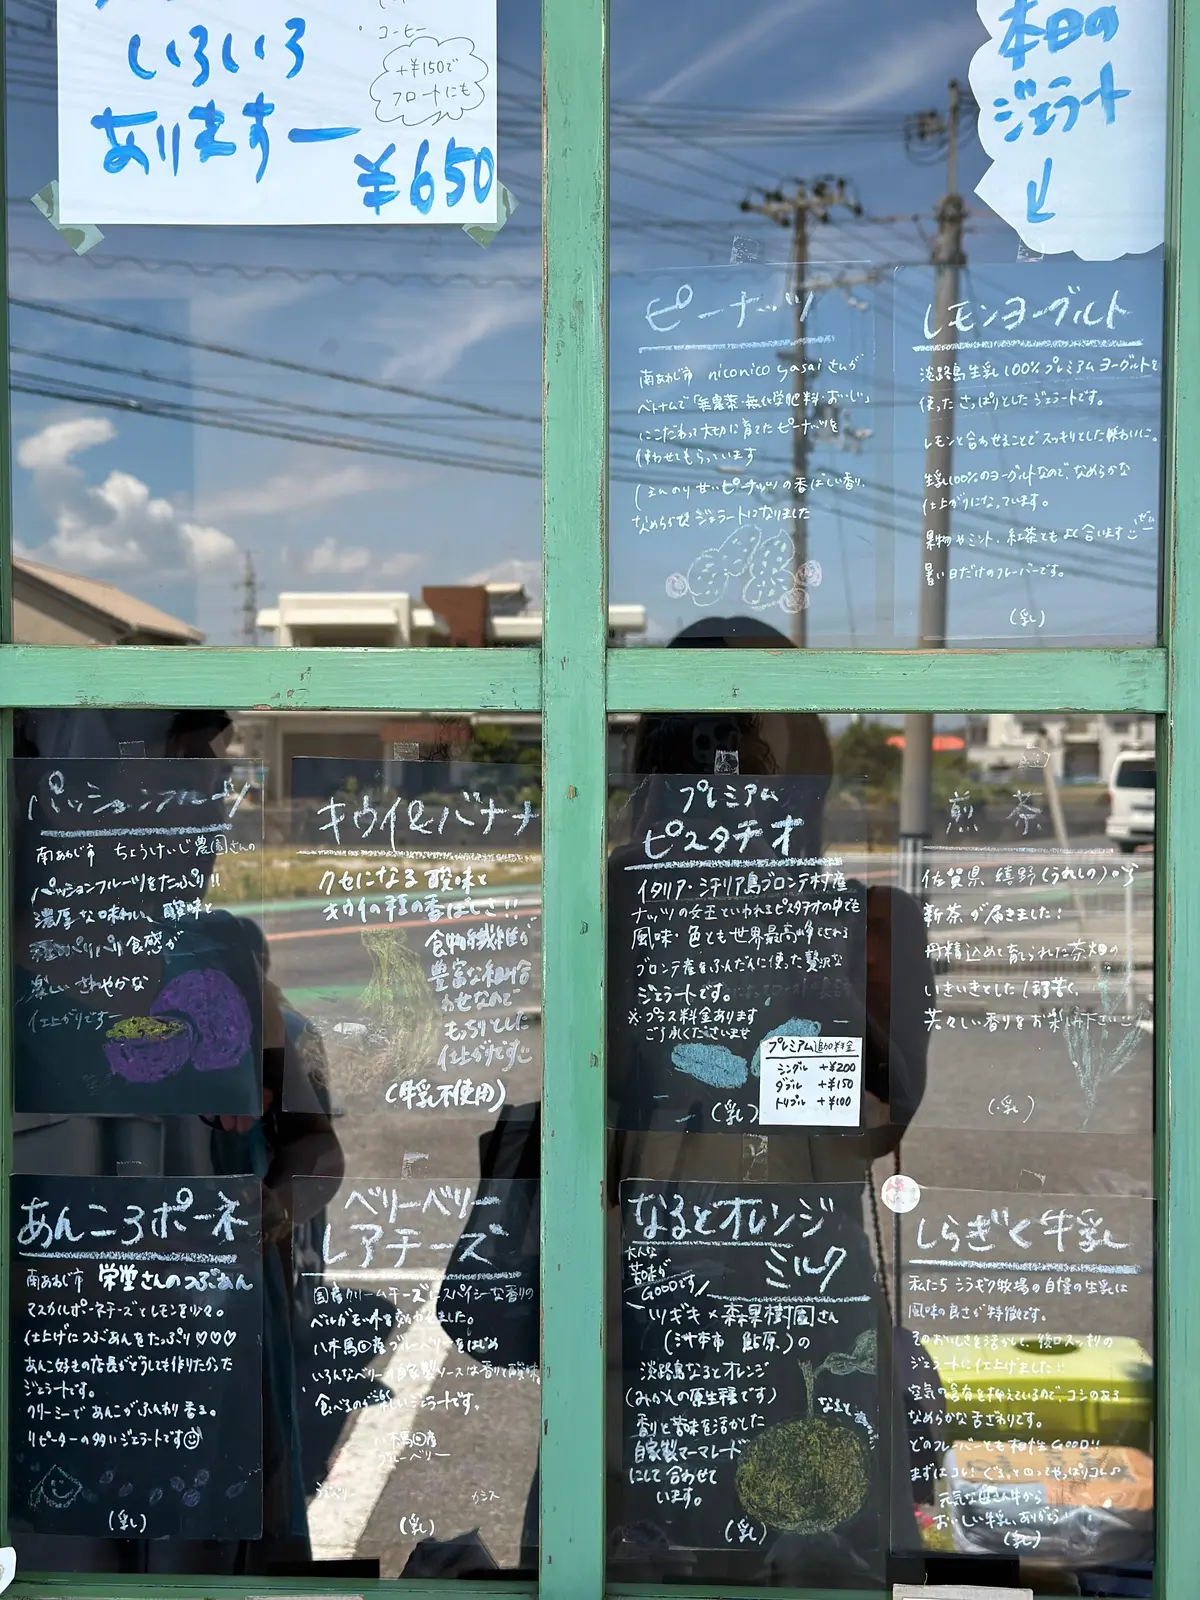 いろいろ
ありますー
¥650
コーヒー
+¥150で
フロートにも
本日の
ジェラート
↓
ピーナッツ
南あわじ市 niconico yasaiさんが
ベトナムで「無農薬・無化学肥料・おいしい」
にこだわって大切に育てたピーナッツを
使わせてもらっています
ほんのり甘いピーナッツの香ばしい香り、
なめらかな ジェラートになりました
レモンヨーグルト
淡路島生乳100%プレミアムヨーグルトを
使った さっぱりとした ジェラートです。
レモンと合わせることで スッキリとした味わいに。
生乳100%のヨーグルトなので、なめらかな
仕上がりになっています。
果物やミント、紅茶とも よく合います
暑い日だけのフレーバーです。
(乳)
パッションフルーツ
南あわじ市 ちょうけいじ農園さんの
パッションフルーツをたっぷり!!
濃厚な味わい、酸味と
種のパリパリ食感が
楽しい さわやかな
仕上がりですー
キウイ&バナナ
クセになる酸味と
キウイの種の香ばしさ!!
食物繊維が
豊富な組み合
わせなので
もっちりとした
仕上がりです
(牛乳不使用)
プレミアム
ピスタチオ
イタリア・シチリア島ブロンテ村産
ナッツの女王といわれるピスタチオの中でも
風味・色とも世界最高峰とされる
ブロンテ産をふんだんに使った贅沢な
ジェラートです。
※プラス料金あります
ご了承くださいませ
(乳)
プレミアム追加料金
シングル +¥200
ダブル +¥150
トリプル +¥100
煎茶
佐賀県 嬉野(うれしの)の
新茶が届きました!
丹精込めて育てられた茶畑の
いきいきとしたほろ苦く、
若々しい香りをお楽しみ下さい
(乳)
あんころボーネ
南あわじ市 栄堂さんのつぶあん
マスカルポーネチーズとレモンを少々。
仕上げにつぶあんをたっぷり♡♡♡
あんこ好きの店長がどうしても作りたかった
ジェラートです。
クリーミーであんこがふんわり香る。
リピーターの多いジェラートです
(乳)
ベリーベリー
レアチーズ
国産クリームチーズにスパイシーな香りの
ベルガモットを効かせました。
八木馬回産ブルーベリーをはじめ
いろんなベリーの自家製ソースは香りと酸味
食べるのが楽しいジェラートです。
八木馬回産
ブルーベリー
カシス
(乳)
なるとオレンジ
ミルク
大人な
苦味が
GOODです
ツギキ×森果樹園さん
(洲本市 鮎原)の
淡路島なるとオレンジ
(みかんの原生種です)
香りと苦味を活かした
自家製マーマレード
にして合わせて
います。
なると
(乳)
しらぎく牛乳
私たち シラギク牧場の自慢の生乳は
風味の良さが特徴です。
そのおいしさを活かして、後口スッキリの
ジェラートに仕上げました!!
空気の含有を抑えているので、コシのある
なめらかな舌ざわりです。
どのフレーバーとも相性GOOD!!
まずはコレ! ぐるっとまわってやっぱりコレ♪
元気な母さん牛から
おいしい牛乳、ありがとう
(乳)